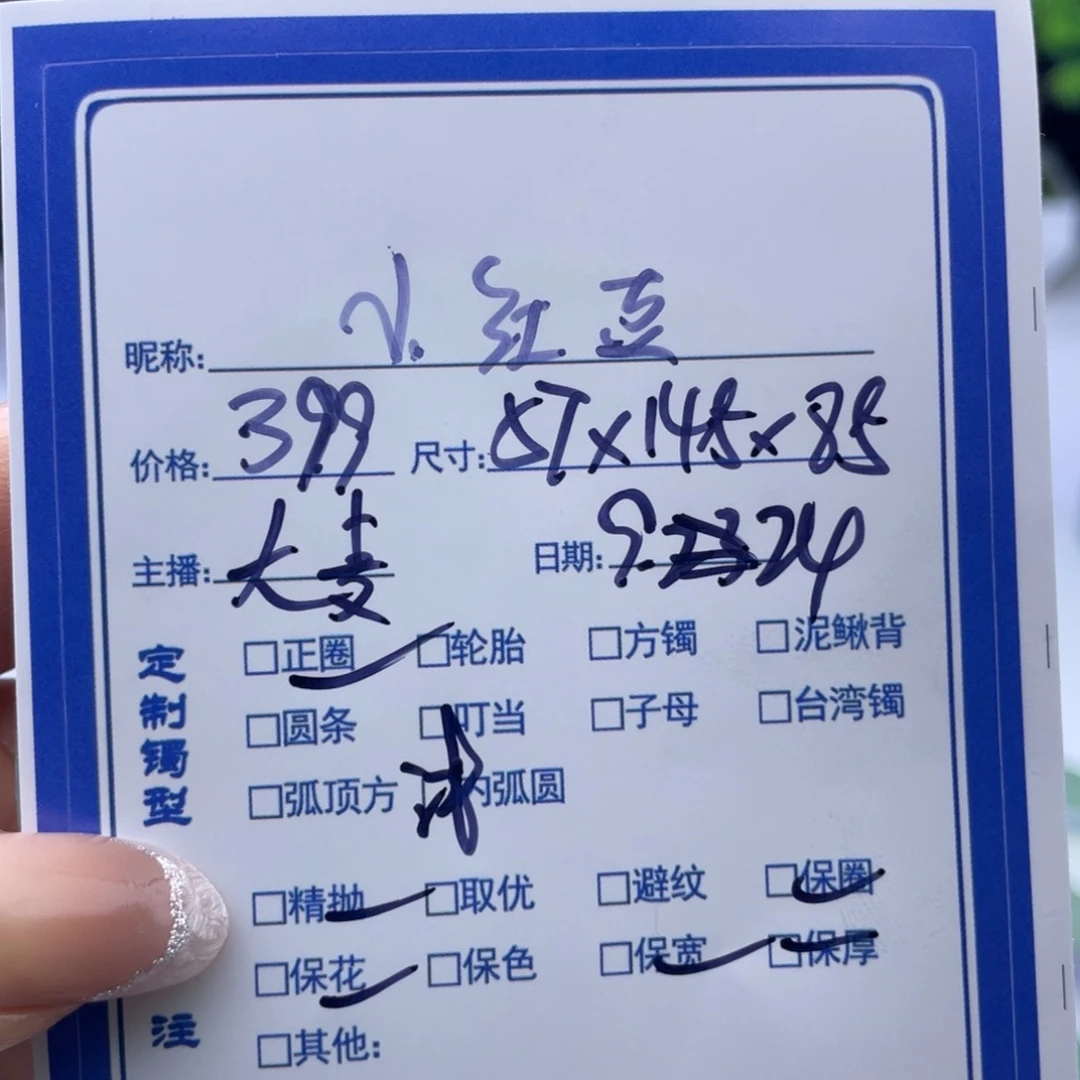 昵称: 小红豆
价格: 399 尺寸: 57×145×85
主播: 大麦 日期: 9.24
定制镯型
□正圈 □轮胎 □方镯 □泥鳅背
□圆条 □叮当 □子母 □台湾镯
□弧顶方 □内弧圆
□精抛 □取优 □避纹 □保圈
□保花 □保色 □保宽 □保厚
注
□其他: